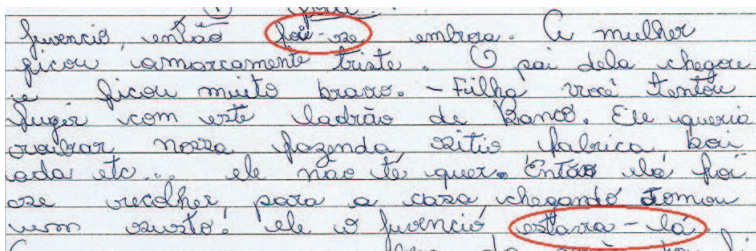 Juvencio, então foi-se embora. A mulher
ficou amarcamente triste. O pai dela chegou
e ficou muito bravo. - Filha você tentou
fugir com este ladrão de Banco. Ele queria
roubar nossa fazenda sitio fabrica boi
ada etc... ele não té quer. Então lá foi
se recolher para a casa chegando tomou
um susto! ele o Juvenció estarra-lá